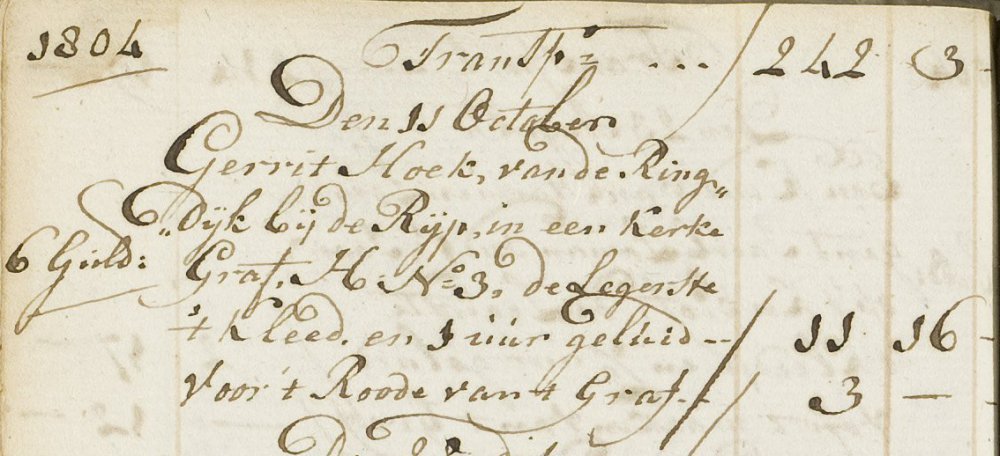 1804 Transp:r ... 242 3 -
Den 11 October
Gerrit Hoek, van de Ring„
„Dijk bij de Rijp, in een Kerke
6 Guld: Graf, H: No 3, de Legerste
't Kleed. en 1 uur geluid -- 11 16 -
Voor 't Roode van 't Graf.- 3 - -